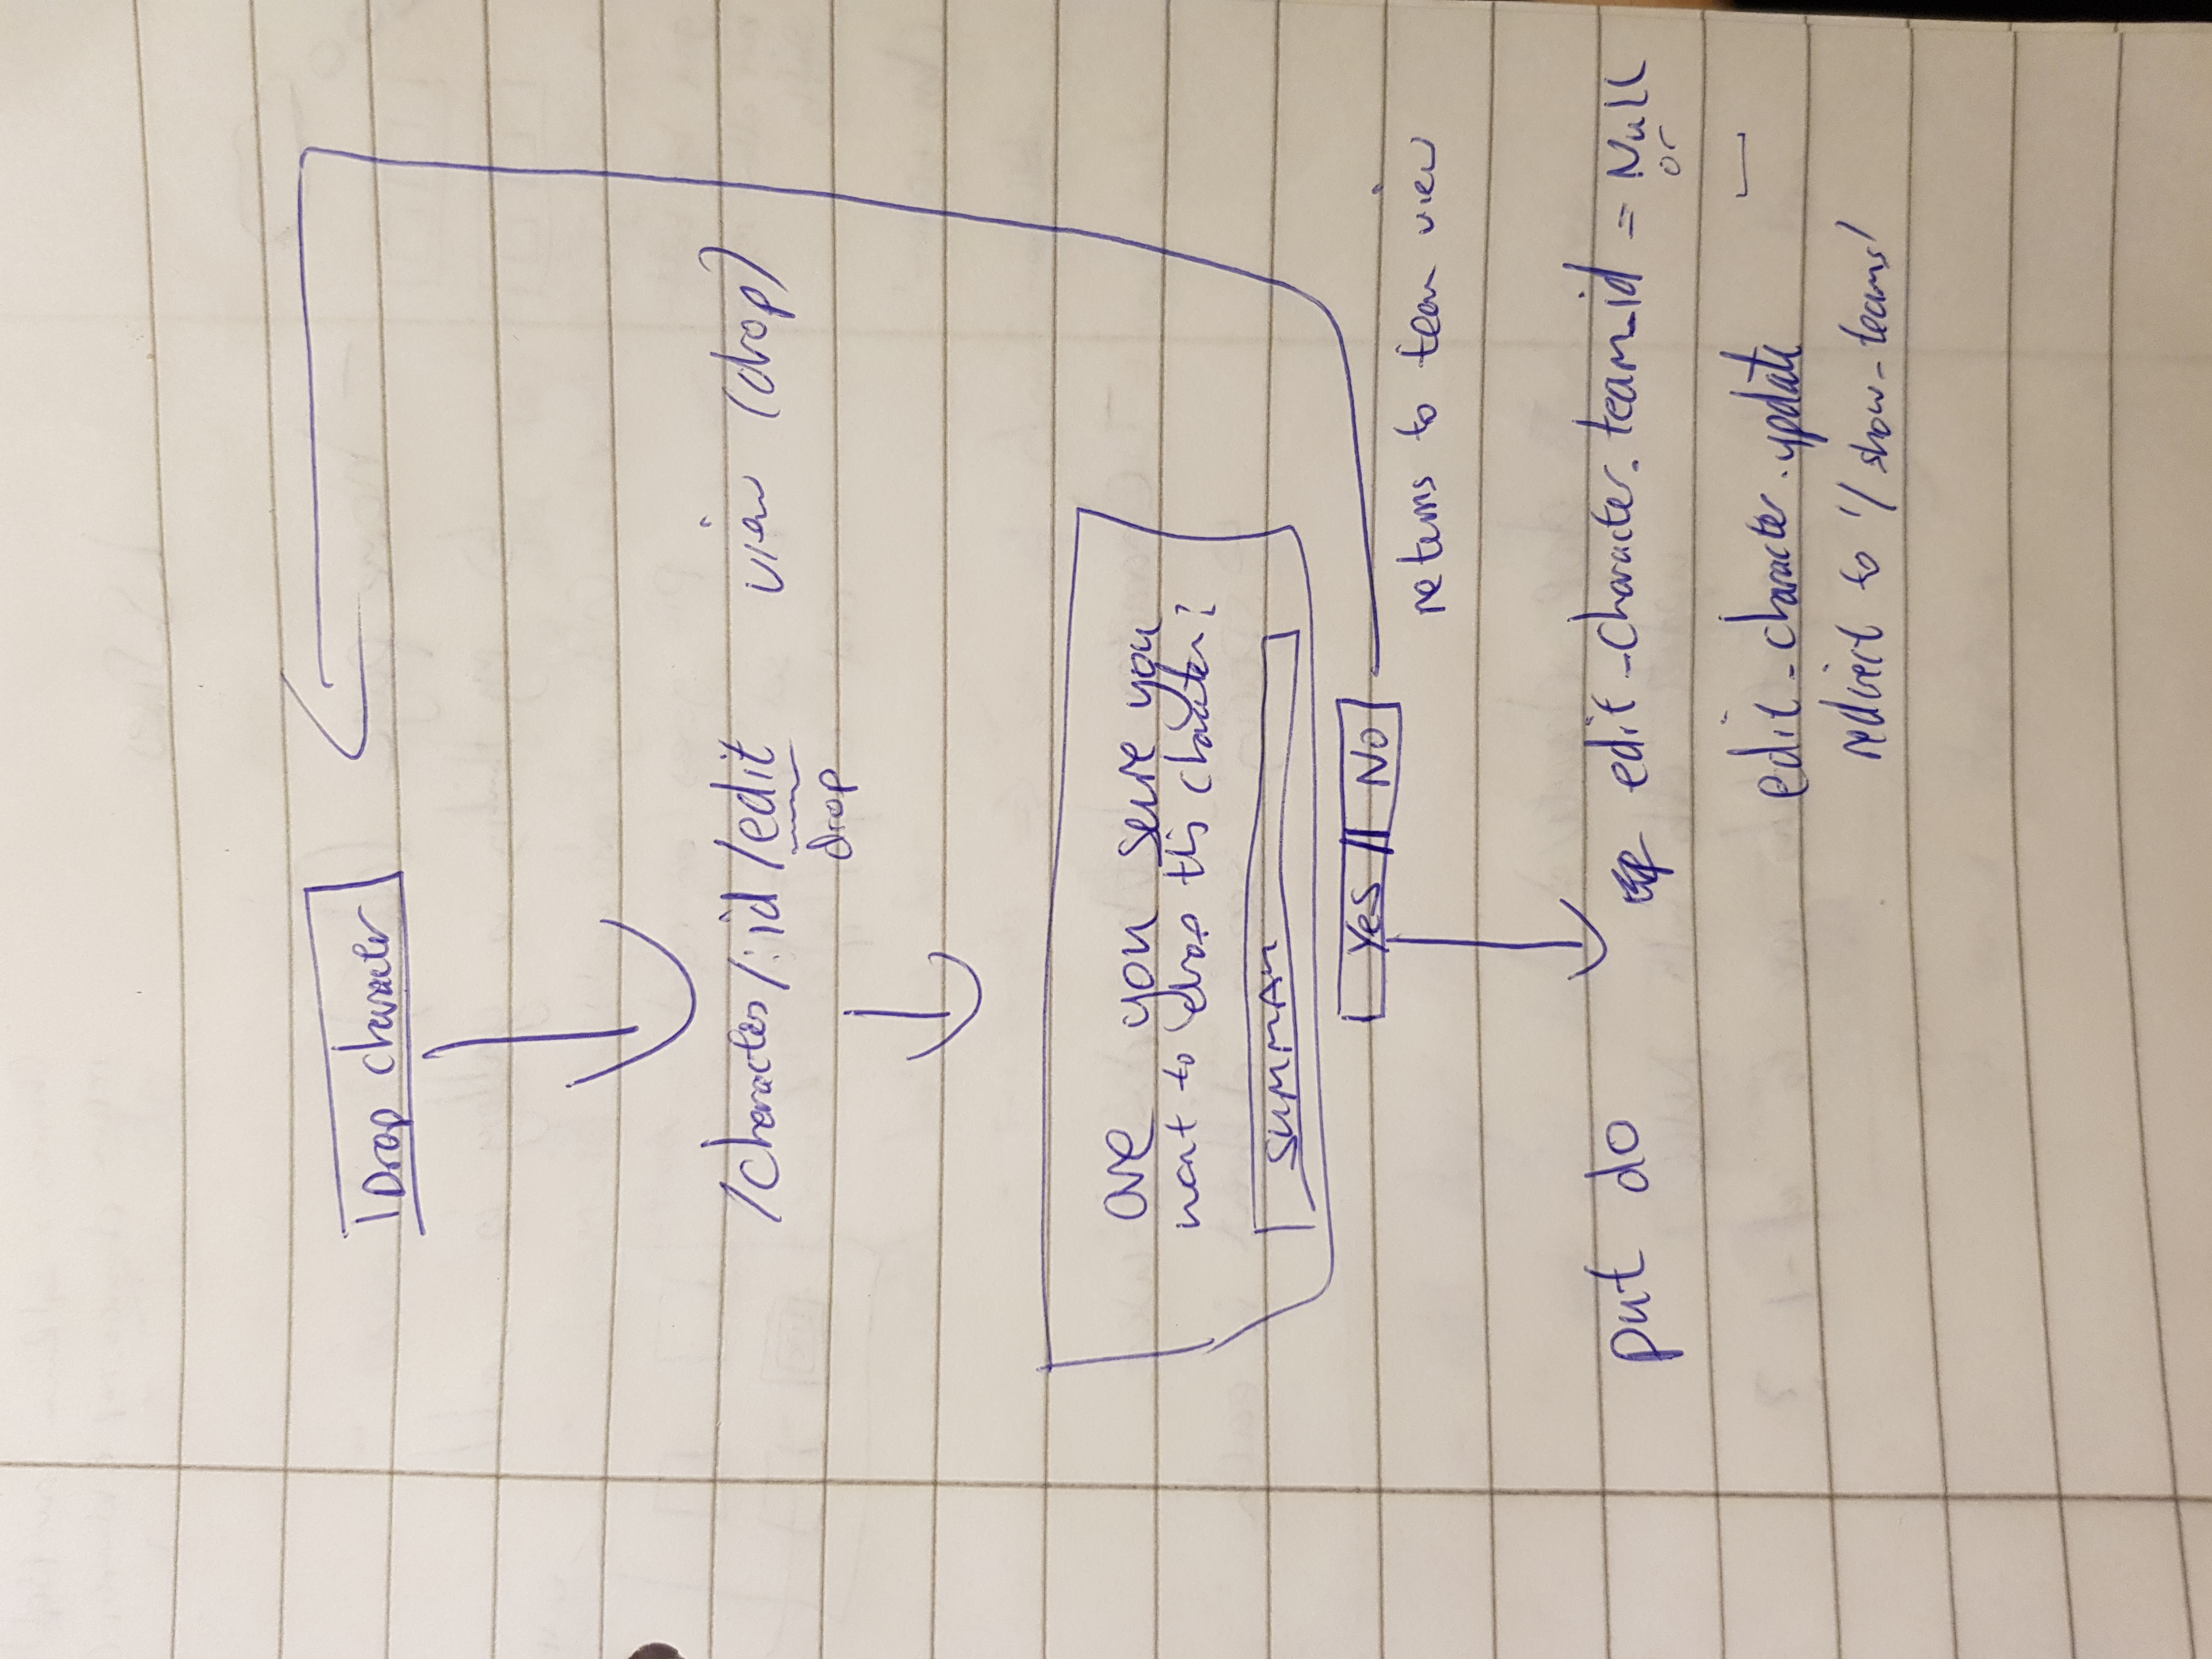 Drop character
/character/:id/edit view (drop)
drop
are you sure you
want to drop this character?
SUMMARY
Yes No
returns to team view
put do edit_character.team_id = Null
or
edit_character.update
redirect to '/show_teams'